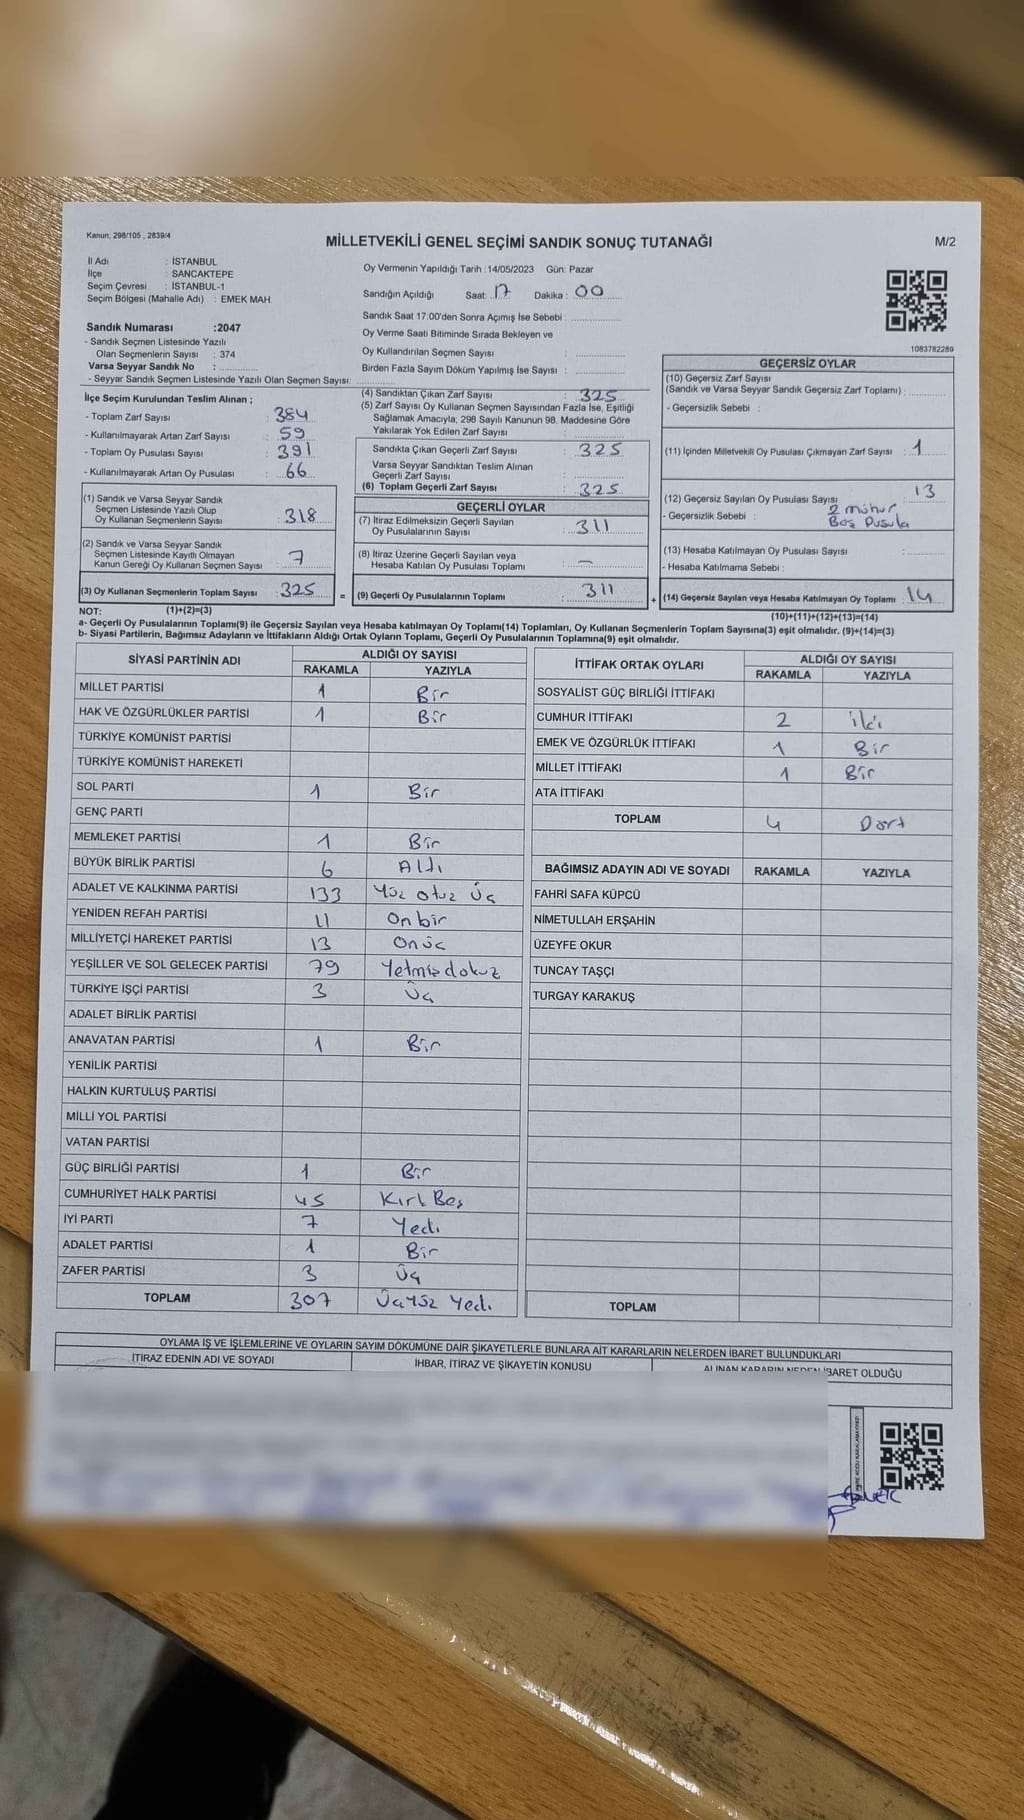 Kanun; 298/105 , 2839/4
MİLLETVEKİLİ GENEL SEÇİMİ SANDIK SONUÇ TUTANAĞI
M/2
İl Adı : İSTANBUL
İlçe : SANCAKTEPE
Seçim Çevresi : İSTANBUL-1
Seçim Bölgesi (Mahalle Adı) : EMEK MAH.
Sandık Numarası :2047
- Sandık Seçmen Listesinde Yazılı
Olan Seçmenlerin Sayısı : 374
Varsa Seyyar Sandık No :
- Seyyar Sandık Seçmen Listesinde Yazılı Olan Seçmen Sayısı:
Oy Vermenin Yapıldığı Tarih :14/05/2023 Gün: Pazar
Sandığın Açıldığı Saat: 17 Dakika : 00
Sandık Saat 17:00'den Sonra Açımış İse Sebebi :
Oy Verme Saati Bitiminde Sırada Bekleyen ve
Oy Kullandırılan Seçmen Sayısı :
Birden Fazla Sayım Döküm Yapılmış İse Sayısı :
1083782289
İlçe Seçim Kurulundan Teslim Alınan ;
- Toplam Zarf Sayısı : 384
- Kullanılmayarak Artan Zarf Sayısı : 59
- Toplam Oy Pusulası Sayısı : 391
- Kullanılmayarak Artan Oy Pusulası : 66
(1) Sandık ve Varsa Seyyar Sandık
Seçmen Listesinde Yazılı Olup
Oy Kullanan Seçmenlerin Sayısı : 318
(2) Sandık ve Varsa Seyyar Sandık
Seçmen Listesinde Kayıtlı Olmayan
Kanun Gereği Oy Kullanan Seçmen Sayısı : 7
(3) Oy Kullanan Seçmenlerin Toplam Sayısı : 325 =
(4) Sandıktan Çıkan Zarf Sayısı : 325
(5) Zarf Sayısı Oy Kullanan Seçmen Sayısından Fazla İse, Eşitliği
Sağlamak Amacıyla; 298 Sayılı Kanunun 98. Maddesine Göre
Yakılarak Yok Edilen Zarf Sayısı :
Sandıkta Çıkan Geçerli Zarf Sayısı : 325
Varsa Seyyar Sandıktan Teslim Alınan
Geçerli Zarf Sayısı :
(6) Toplam Geçerli Zarf Sayısı : 325
GEÇERLİ OYLAR
(7) İtiraz Edilmeksizin Geçerli Sayılan
Oy Pusulalarının Sayısı : 311
(8) İtiraz Üzerine Geçerli Sayılan veya
Hesaba Katılan Oy Pusulası Toplamı : —
(9) Geçerli Oy Pusulalarının Toplamı : 311 +
GEÇERSİZ OYLAR
(10) Geçersiz Zarf Sayısı
(Sandık ve Varsa Seyyar Sandık Geçersiz Zarf Toplamı) :
- Geçersizlik Sebebi :
(11) İçinden Milletvekili Oy Pusulası Çıkmayan Zarf Sayısı : 1
(12) Geçersiz Sayılan Oy Pusulası Sayısı : 13
- Geçersizlik Sebebi : 2 mühür
Boş Pusula
(13) Hesaba Katılmayan Oy Pusulası Sayısı :
- Hesaba Katılmama Sebebi :
(14) Geçersiz Sayılan veya Hesaba Katılmayan Oy Toplamı : 14
NOT: (1)+(2)=(3)
(10)+(11)+(12)+(13)=(14)
a- Geçerli Oy Pusulalarının Toplamı(9) ile Geçersiz Sayılan veya Hesaba katılmayan Oy Toplamı(14) Toplamları, Oy Kullanan Seçmenlerin Toplam Sayısına(3) eşit olmalıdır. (9)+(14)=(3)
b- Siyasi Partilerin, Bağımsız Adayların ve İttifakların Aldığı Ortak Oyların Toplamı, Geçerli Oy Pusulalarının Toplamına(9) eşit olmalıdır.
SİYASİ PARTİNİN ADI ALDIĞI OY SAYISI
RAKAMLA YAZIYLA
MİLLET PARTİSİ 1 Bir
HAK VE ÖZGÜRLÜKLER PARTİSİ 1 Bir
TÜRKİYE KOMÜNİST PARTİSİ
TÜRKİYE KOMÜNİST HAREKETİ
SOL PARTİ 1 Bir
GENÇ PARTİ
MEMLEKET PARTİSİ 1 Bir
BÜYÜK BİRLİK PARTİSİ 6 Altı
ADALET VE KALKINMA PARTİSİ 133 Yüz otuz Üç
YENİDEN REFAH PARTİSİ 11 On bir
MİLLİYETÇİ HAREKET PARTİSİ 13 On üç
YEŞİLLER VE SOL GELECEK PARTİSİ 79 Yetmiş dokuz
TÜRKİYE İŞÇİ PARTİSİ 3 Üç
ADALET BİRLİK PARTİSİ
ANAVATAN PARTİSİ 1 Bir
YENİLİK PARTİSİ
HALKIN KURTULUŞ PARTİSİ
MİLLİ YOL PARTİSİ
VATAN PARTİSİ
GÜÇ BİRLİĞİ PARTİSİ 1 Bir
CUMHURİYET HALK PARTİSİ 45 Kırk Beş
İYİ PARTİ 7 Yedi
ADALET PARTİSİ 1 Bir
ZAFER PARTİSİ 3 Üç
TOPLAM 307 Üçyüz Yedi
İTTİFAK ORTAK OYLARI ALDIĞI OY SAYISI
RAKAMLA YAZIYLA
SOSYALİST GÜÇ BİRLİĞİ İTTİFAKI
CUMHUR İTTİFAKI 2 İki
EMEK VE ÖZGÜRLÜK İTTİFAKI 1 Bir
MİLLET İTTİFAKI 1 Bir
ATA İTTİFAKI
TOPLAM 4 Dört
BAĞIMSIZ ADAYIN ADI VE SOYADI RAKAMLA YAZIYLA
FAHRİ SAFA KÜPCÜ
NİMETULLAH ERŞAHİN
ÜZEYFE OKUR
TUNCAY TAŞÇI
TURGAY KARAKUŞ
TOPLAM
OYLAMA İŞ VE İŞLEMLERİNE VE OYLARIN SAYIM DÖKÜMÜNE DAİR ŞİKAYETLERLE BUNLARA AİT KARARLARIN NELERDEN İBARET BULUNDUKLARI
İTİRAZ EDENİN ADI VE SOYADI İHBAR, İTİRAZ VE ŞİKAYETİN KONUSU ALINAN KARARIN NEDEN İBARET OLDUĞU